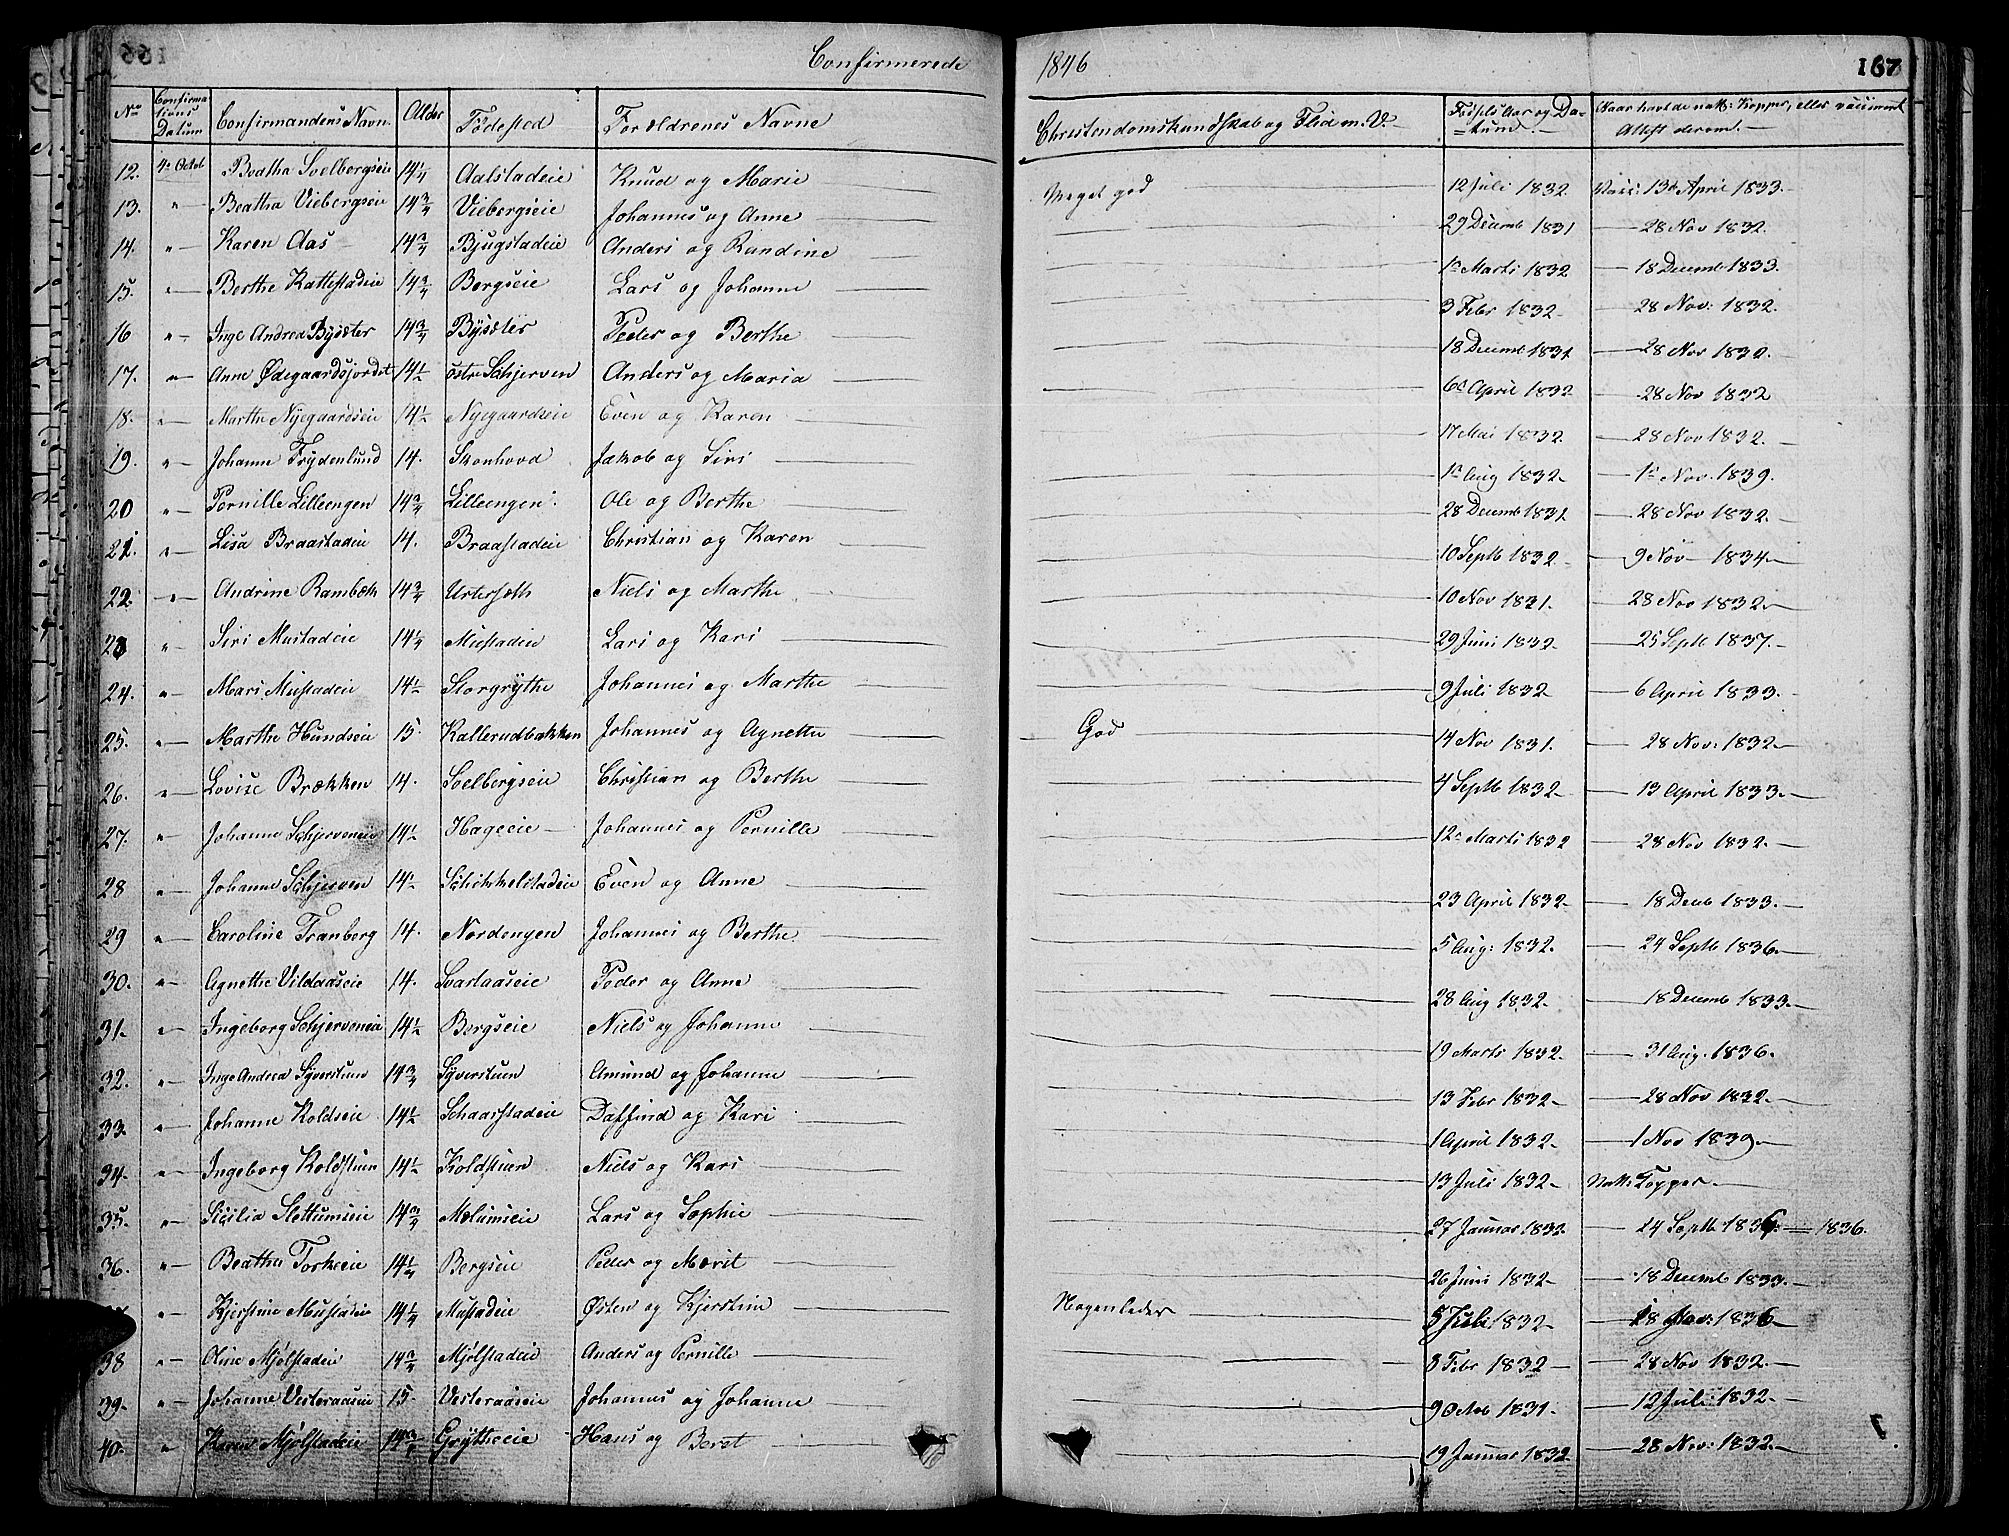 Confirmerede 1846 167
No Confirmations Datum Confirmandens Navn Alder Födested Forældrenes Navne Christendomskundskab og Flid m. V. Födsels Aar og Datum Naar havt de natl: Kopper, eller vaccineret Attest derom.
12. 4de Octob Beatha Soelbergseie 14 1/4 Aalstadeie Knud og Marie Meget god 12 Juli 1832 Vacc: 13de April 1833.
13. " Beatha Viebergseie 14 3/4 Viebergseie Johannes og Anne 29 Decemb 1831 28 Nov 1832.
14. " Karen Aas 14 3/4 Bjugstadeie Anders og Rundine 1s Marts 1832 18 Decemb 1833.
15. " Berthe Kattestadeie 14 3/4 Bergseie Lars og Johanne 3 Febr 1832 28 Nov: 1832.
16 " Inge Andrea Bysæter 14 3/4 Bysæter Peder og Berthe 18 Decemb 1831 28 Nov 1832.
17. " Anne Ødegaardsjordet 14 1/2 östre Schjerven Anders og Maria 6d April 1832 28 Nov 1832
18. " Marthe Nyegaardseie 14 1/2 Nyegaardseie Even og Karen 17 Mai 1832 28 Nov 1832.
19. " Johanne Frydenlund 14. Skonhovd Jakob og Siri 1s Aug 1832 1s Nov. 1839.
20 " Pernille Lilleengen 14 3/4 Lilleengen Ole og Berthe 28 Decemb 1831 28 Nov 1832.
21. " Lisa Braastadeie 14. Braastadeie Christian og Karen 10 Septb 1832 9 Nov 1834
22. " Andrine Rambæk 14 3/4 Niels og Marthe 10 Nov 1831. 28 Nov 1832.
23 " Siri Mustadeie 14 1/4 Mustadeie Lars og Kari 29 Juni 1832 25 Septb 1837.
24. " Mari Mustadeie 14 1/2 Storgrythe Johannes og Marthe 9 Juli 1832 6 April 1833.
25. " Marthe Hundseie 15. Kallerudbakken Johannes og Agnethe God 14 Nov 1831. 28 Nov: 1832
26. " Lovise Brækken 14. Soelbergseie Christian og Berthe 4 Septb 1832 13 April 1833.
27. " Johanne Schjerveneie 14 1/2 Hageeie Johannes og Pernille 12 Marts 1832 28 Nov 1832.
28 " Johanne Schjerven 14 1/2 Schikkelstadeie Even og Anne 23 April 1832 18 Decb 1833.
29 " Caroline Tranberg 14. Nordengen Johannes og Berthe 5 Aug: 1832. 24 Septb 1836.
30. " Agnethe Vildaaseie 14. Svartaaseie Peder og Anne 28 Aug 1832. 18 Decemb 1833.
31. " Ingeborg Schjerveneie 14 1/2 Bergseie Niels og Johanne 19 Marts 1832. 31 Aug. 1836.
32. " Inge Andrea Syverstuen 14 3/4 Syverstuen Amund og Johanne 13 Febr 1832 28 Nov 1832.
33. " Johanne Koldseie 14 1/2 Schaarstadeie Daffind og Kari 1 April 1832 1 Nov 1839
34. " Ingeborg Koldstuen 14 1/4 Koldstuen Niels og Kari 13 Juli 1832 Natl: Copper
35. " Sicilia Slettumseie 14 3/4 Melumseie Lars og Sophie 27 Januar 1832. 24 Septb 1836 = 1836.
36. " Beatha Torkeeie 14 1/4 Bergseie Peder og Marit 26 Juni 1832 18 Decemb 1833.
" Kjerstine Mustadeie 14 1/4 Mustadeie Østen og Kjerstine Nogenledes 5 Juli 1832 28 Nov: 1836
38 " Oline Mjølstadeie 14 3/4 Mjølstadeie Anders og Pernille 8 Febr 1832 28 Nov 1832.
39. " Johanne Vesteraaseie 15. Vesteraaseie Johannes og Johanne 9 Octob 1831. 12 Juli 1832
40. " Karen Mjølstadeie 14 3/4 Grytheeie Hans og Beret 19 Januar 1832 28 Nov: 1832.